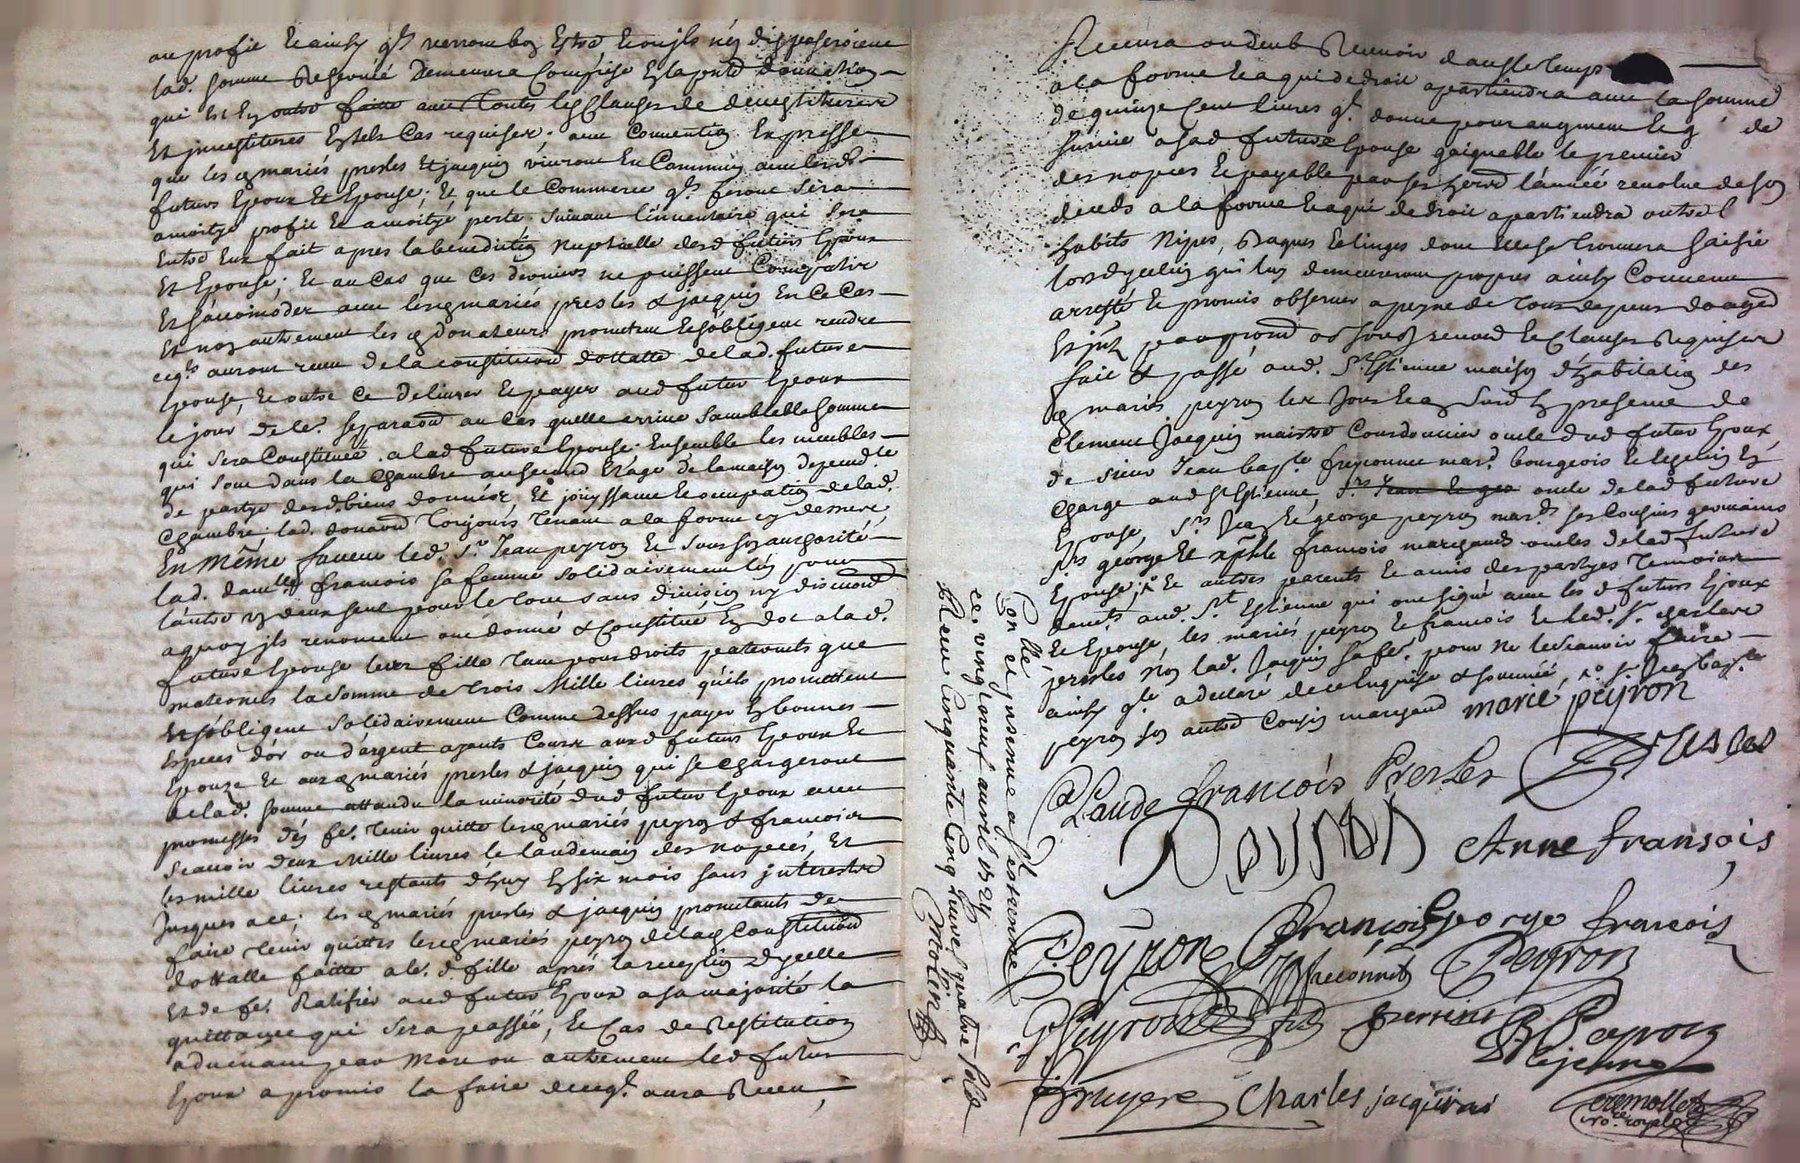 au profit et ainsy qu'ils verront bon estre et ou jls n'en disposeroient
lad. somme reservée demeurera comprise en la pnte donnation
qui est en outre faitte avec toutes les clauses de devestitures
et jnvestitures en tels cas requises. avec convention expresse
que les mariés presles et jacquin vivront en commun avec lesd.
futurs epoux et epouse; et que le commerce qu'ils feront sera
a moitye profit et a moitye perte suivant l'inventaire qui sera
entre eux fait apres la benediction nuptialle desd futurs epoux
et epouse; et au cas que ces derniers ne puissent compatir
et s'acomoder avec lesd mariés presles & jacquin en ce cas
et non autrement les donateurs promettent et s'obligent rendre
ce qu'ils auront receu de la constitution dottalle de lad. future
epouse, et outre ce delivrer et payer aud futur epoux
le jour de la separaon au cas quelle arrive semblable somme
qui sera constituée a lad future epouse. ensemble les meubles
qui sont dans la chambre au second etage de la maison depend.te
de partye desd. biens donnés, et jouyssance et occupation de lad.
chambre; lad. donaon toujours tenant a la forme cy dessus
en même faveur led. sr. jean peyron et sous son authorité
lad. damlle francois sa femme solidairement l'un pour
l'autre un deux seul pour le tout sans division ny discution
a quoy jls renoncent ont donné & constitué en dot a lad.
future epouse leur fille tant pour droits paternels que
maternels la somme de trois mille livres qu'ils promettent
et s'obligent solidairement comme dessus payer en bonnes
espèces d'or ou d'argent ayants cours aux d futurs epoux et
epouze et aux mariés presles & jacquin qui se chargeront
de lad. somme attandu la minorité dud futur epoux avec
promesses d'en fe. tenir quitte lesd mariés peyron & francois
scavoir deux mille livres le landemain des nopces, et
les mille livres restants d'huy en six mois sans jnterests
jusques a ce; les mariés presles & jacquin promettants de
faire tenir quittes lesd mariés peyron de lad constitution
dottalle faitte a le. d fille aprés la reception d'ycelle
et de fe. ratifier aud futur epoux a sa majorité la
quittance qui sera passée, et cas de restitution
advenant par mort ou autrement led futur
epoux a promis la faire de ce qu'il aura receu,
receura ou deub recevoir dans le temps
a la forme et a qui de droit apartiendra avec la somme
de quinze cent livres qu'il donne pour augment et g de
survie a sad future epouse gaignable le premier
des nopces et payable par ses hers l'année revolue de son
deceds a la forme et a qui de droit apartiendra outre l
habits nipes, bagues et linges dont elle se trouvera saisie
lors d'yceluy qui luy demeureront propres ainsy convenu
arresté et promis observer a peyne de tous depens domages
et jnts par promon obligon sousmon renond et clauses requises
fait & passé aud. St. Estienne maison d'habitation des
mariés peyron les jour et an susd en presence de
clement jacquin maistre courdonnier oncle dud futur epoux
de sieur jean bapte. freyconnet mard. bourgeois et echevin en
charge aud St Estienne, srs jean et geo oncle de lad future
epouse, srs jean et george peyron mards ses cousins germains
srs george et xphle francois marchands oncles de lad future
epouse, et autres parents et amis des partyes temoins
aud. St Estienne qui ont signé avec les d futurs epoux
et epouse, les mariés peyron et francois et led. sr. charles
presles non lad. jacquin sa fe. pour ne le scavoir faire
ainsy qu'elle a declaré de ce enquise & sommée, sr. jean bapte
peyron son autre cousin marchand marie peyron
Claude françois Presles Presles
Peyron Anne fransois
Peyrone françois George francois
freconnet Peyron
Peyron fils Perrin
B Peyron
le jeune
Bruyere Charles jacquin
cremollet
no.re royal
Conllé et jnsinué a St estienne
ce vingt neuf avril 1724
Receu cinquante cinq livres quatre sols
Molien